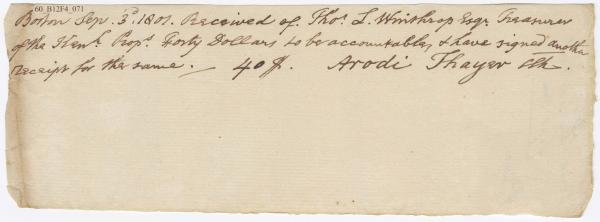 60_B12F4_071
Boston Sep. 3d. 1801. Received of Thos. L. Winthrop Esqr. Treasurer
of the Kenk. Props. Forty Dollars to be accountable, & have signed another
receipt for the same. — 40 $. Arodi Thayer Clk.